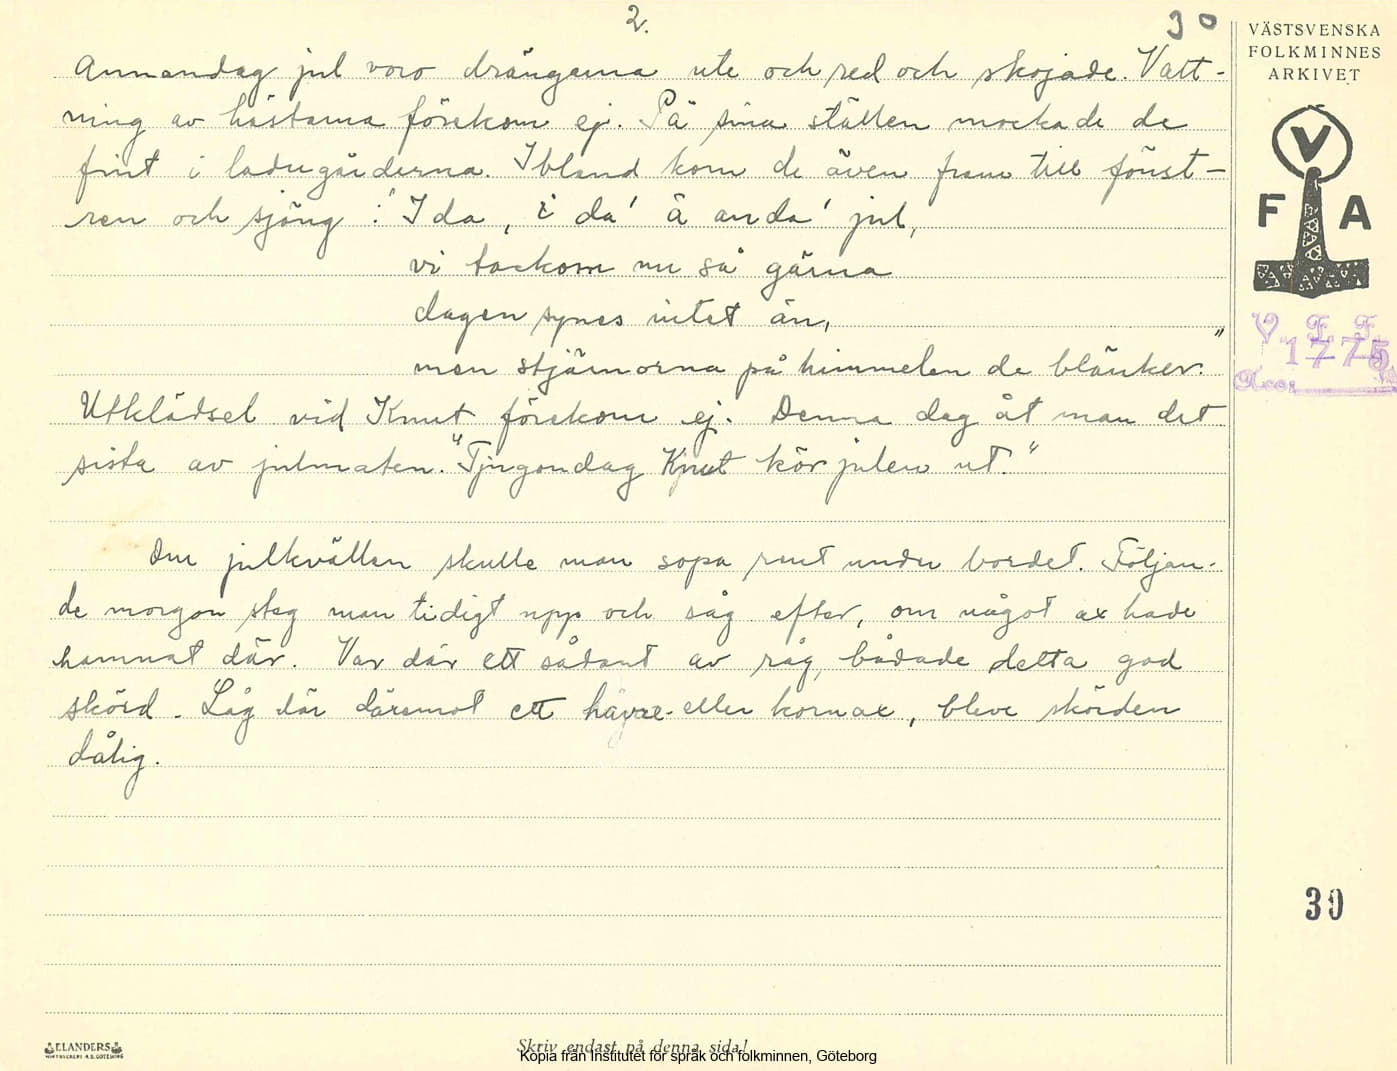 2.
30
Annandag jul voro drängarna ute och red och skojade. Vatt-
ning av hästarna förekom ej. På sina ställen mockade de
fint i ladugårderna. Ibland kom de även fram till fönst-
ren och sjöng: "I da, i da' ä anda' jul,
vi kockom nu så gärna
dagen synes intet än,
men stjärnorna på himmelen de blänker."
Utklädsel vid Knut förekom ej. Denna dag åt man det
sista av julmaten. "Tjugondag Knut kör julen ut."
Om julkvällen skulle man sopa rent under bordet. Följan-
de morgon steg man tidigt upp och såg efter, om något ax hade
hamnat där. Var där ett sådant av råg, bådade detta god
skörd. Låg där däremot ett havre- eller kornax, bleve skörden
dålig.
VÄSTSVENSKA
FOLKMINNES
ARKIVET
V
F A
V. F. F.
1775
Acc:
30
ELANDERS
Skriv endast på denna sida!
Kopia från Institutet för språk och folkminnen, Göteborg